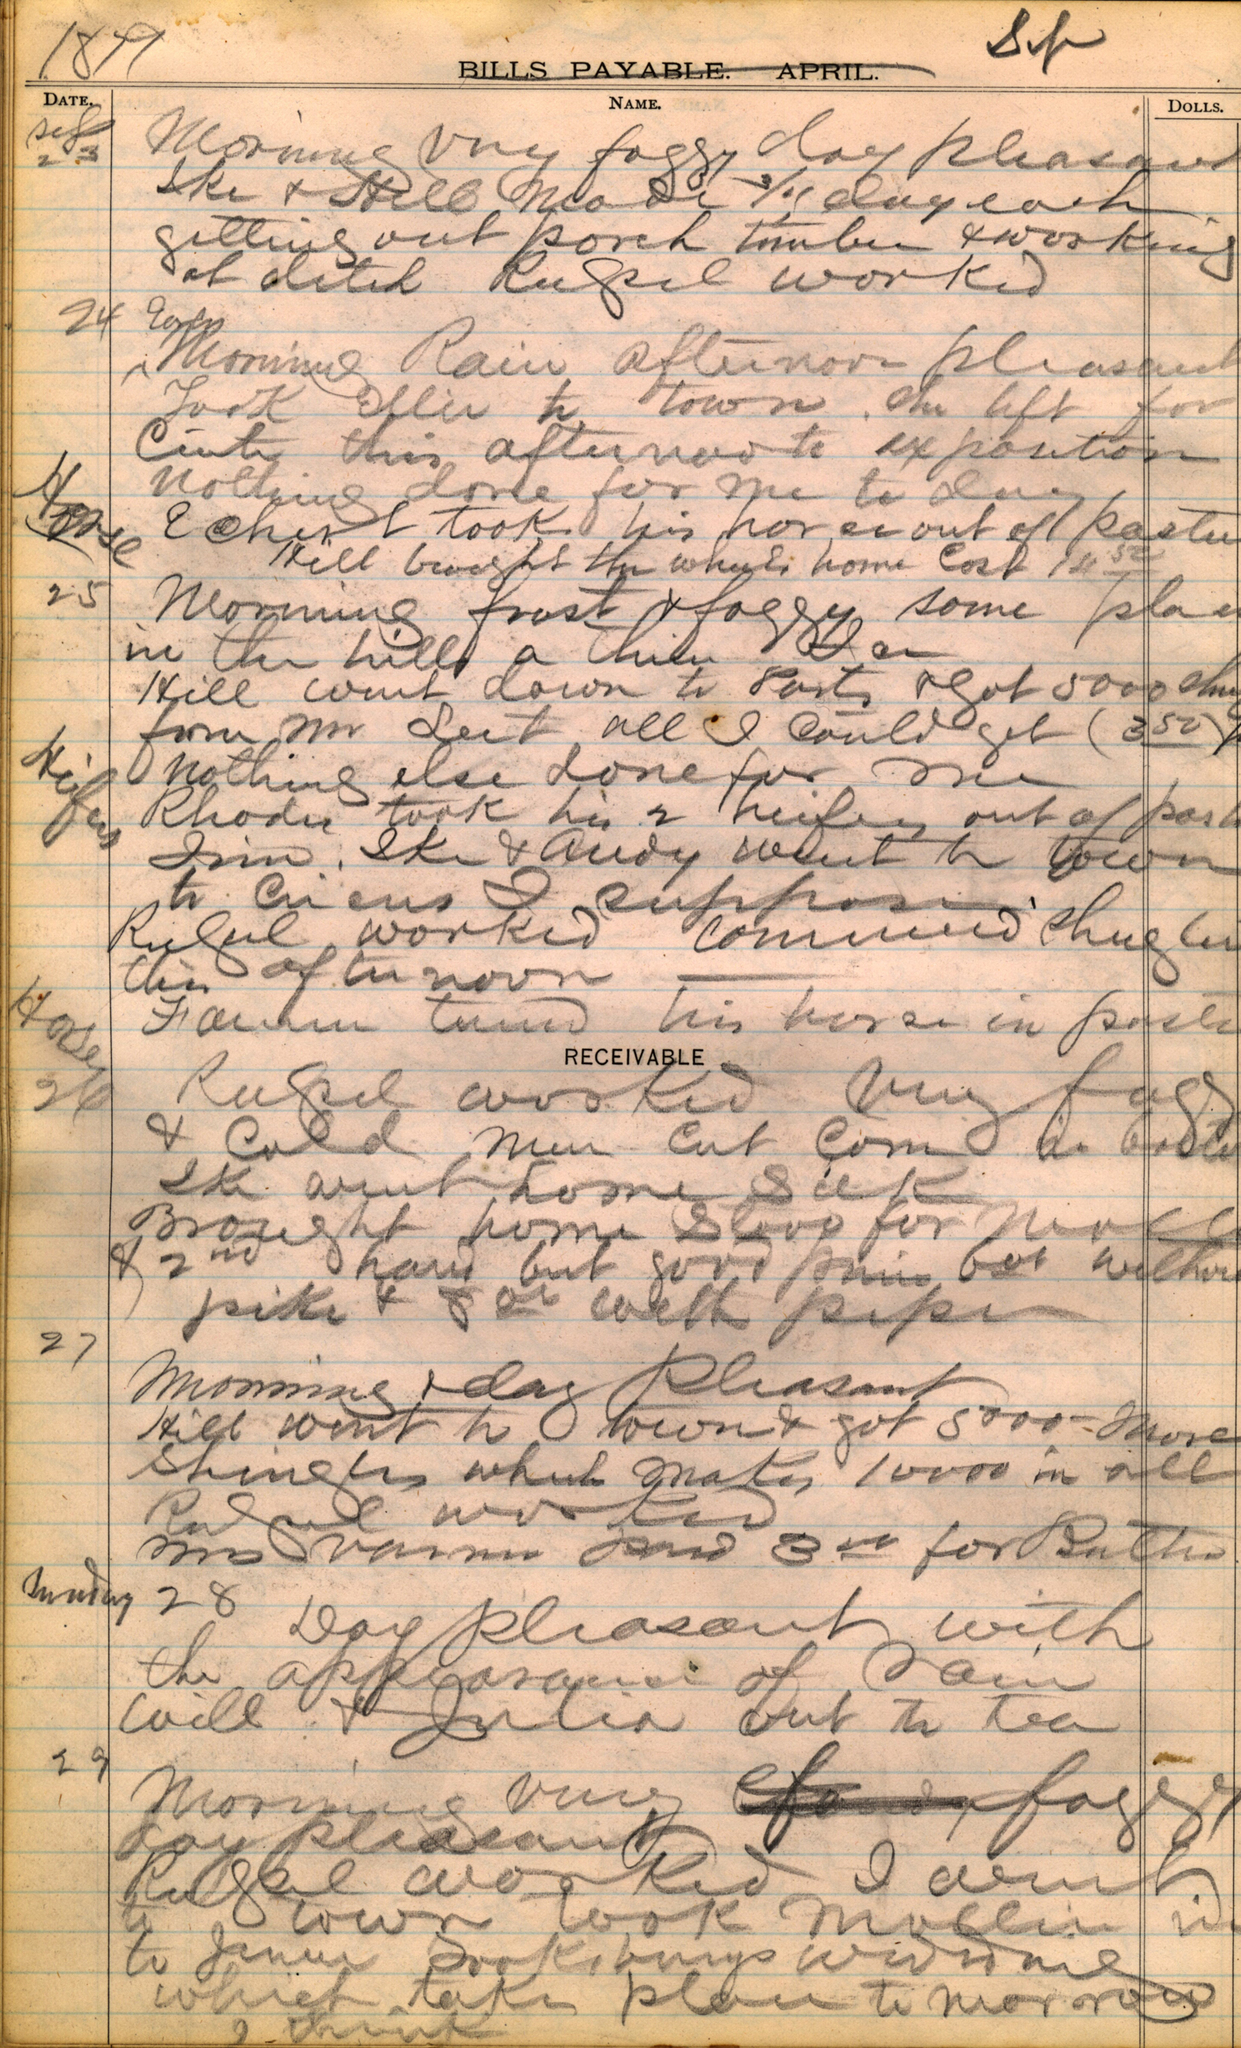 1879
Sep
BILLS PAYABLE. APRIL.
DATE. NAME. DOLLS.
Sep 23 Morning very foggy day pleasant
Ike & Hill made 3/4 day each
getting out porch timber & working
at ditch Rugul worked
24 Early
Morning Rain afternoon pleasant
Took Effie to town. she left for
this afternoo to exposition
nothing done for me to day
Horse Echert took his horse out of pastu
Hill brought the wheels home Cost
25 Morning frost & foggy some pla
in the hills a thin
Hill went down to Ports & Got 5000 shing
from Mr all I could get (3 50)
nothing else done for me
Heifers Rhodes took his 2 heifers out of past
Jim. Ike & Andy went to town
to Circus I suppose
Rugul worked commened shingling
this afternoon
Horse turned his horse in paste
RECEIVABLE
26 Rugul worked very fogg
& Cold men Cut Corn in
Ike went home Sick
Brought home for
& 2nd hand but good but without
& with
27
Morning & day Pleasant
Hill went to town & got 5000 more
shingles which makes 10000 in all
Rugul worked
Mrs 3 for Butter
Sunday 28 Day pleasant with
the appearance of rain
Will & Julia out to tea
29
Morning very foggy
day pleasant
Rugul worked I went
to town took Mollie in
to wedding
which takes place to morrow
I think